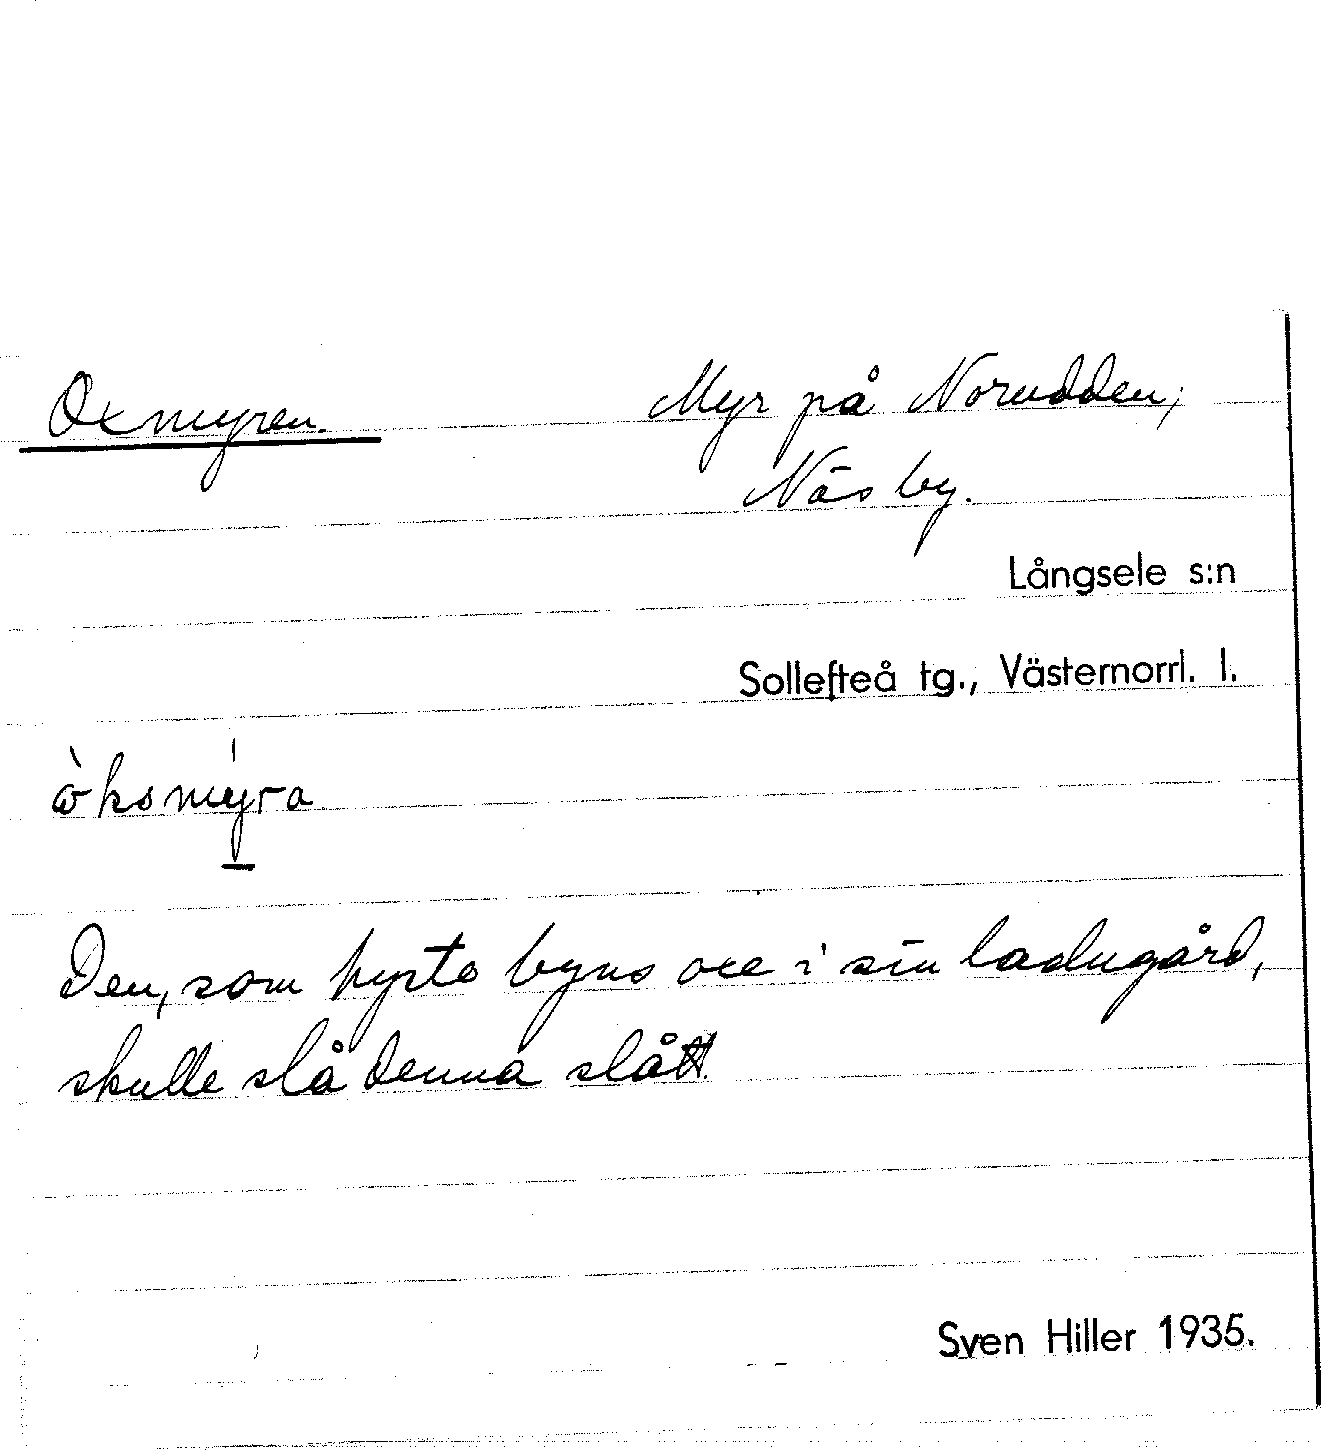 Oxmyren.
Myr på Norudden,
Näs by.
Långsele s:n
Sollefteå tg., Västernorrl. l.
Den, som hyste byns oxe i sin ladugård,
skulle slå denna slått.
Sven Hiller 1935.